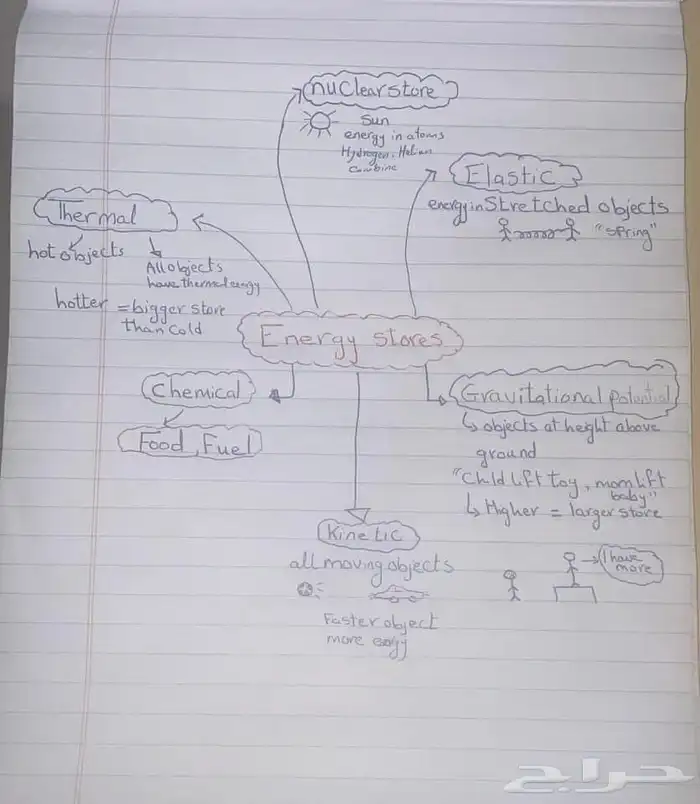 nuclear store
Sun
energy in atoms
Hydrogen. Helium
Combine
Elastic
energy in Stretched objects
"spring"
Thermal
hot objects
All objects
have thermal energy
hotter = bigger store
than cold
Energy stores
Chemical
Food, Fuel
Gravitational potential
objects at height above
ground
"Child lift toy, mom lift
baby"
Higher = larger store
I have
more
Kinetic
all moving objects
Faster object
more
حراج